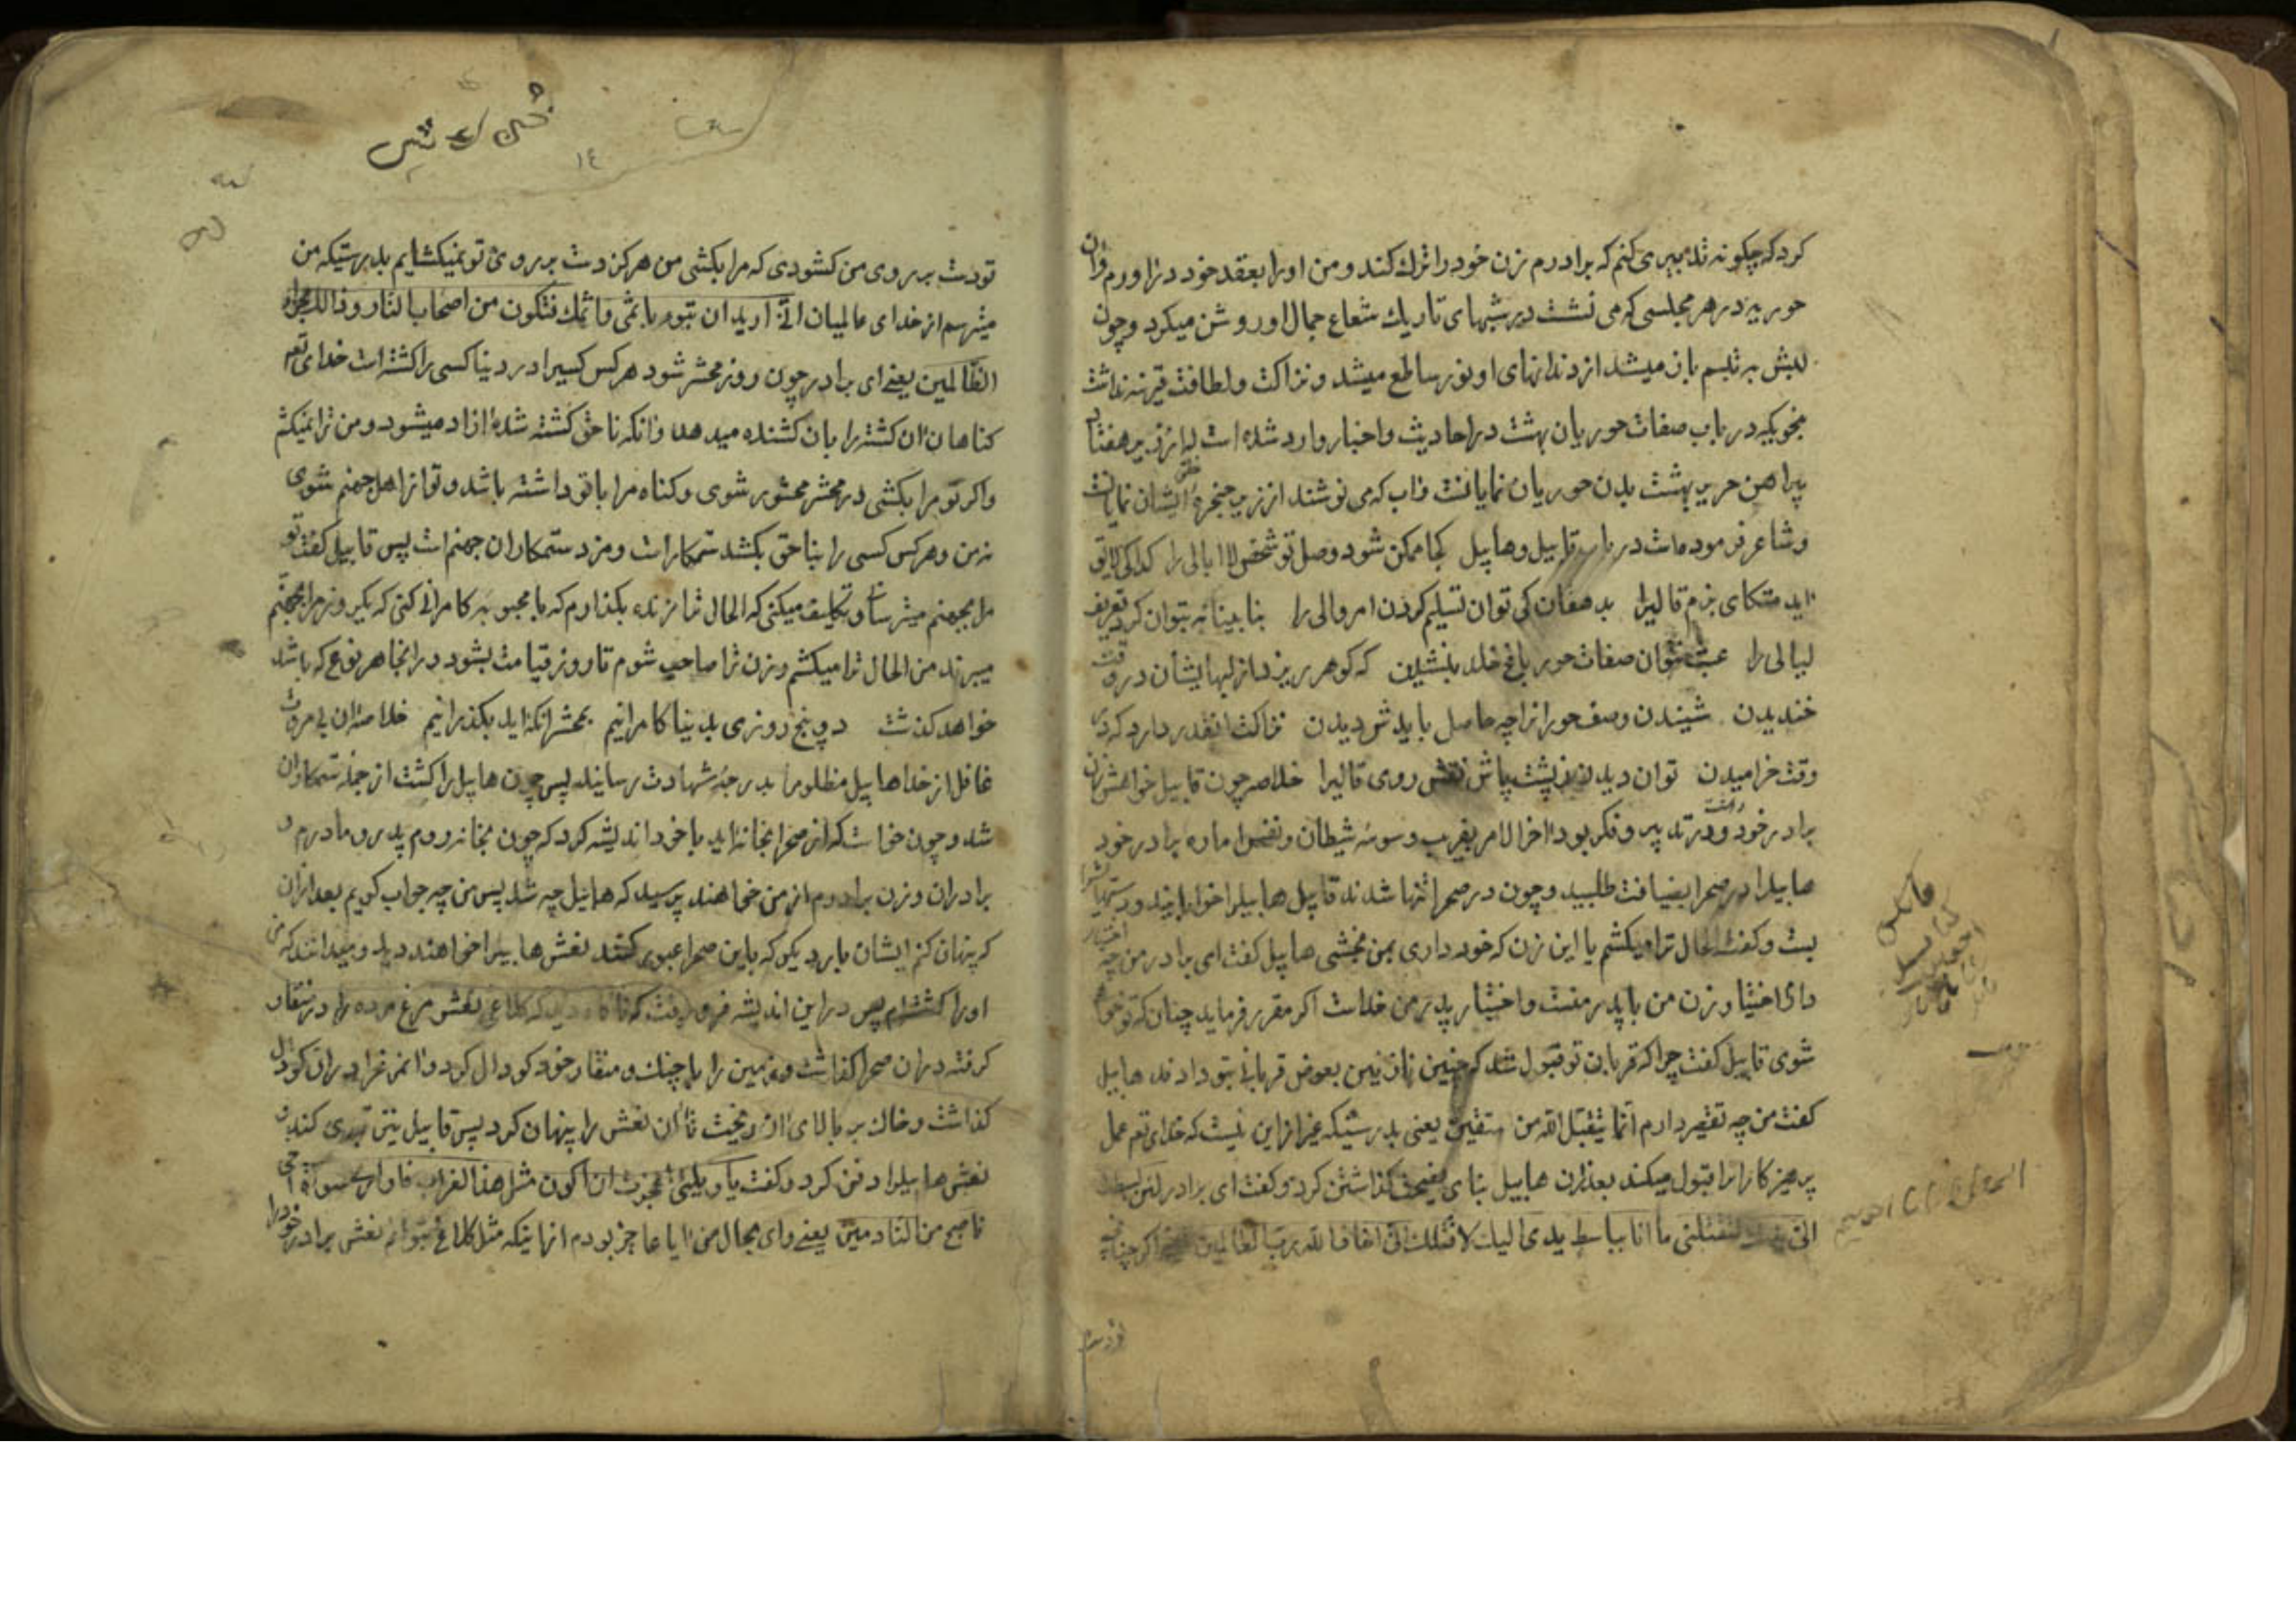 کرد که چکونه تدبیری کنم که برادرم زن خود را ترک کند و من او را بعقد خود در اورم وان
حوریه در هر مجلسی که می نشست در شبهای تاریک شعاع جمال او روشن میکرد و چون
لبش به تبسم باز میشد از دندانهای او نور ساطع میشد و نزاکت و لطافت قرینه نداشت
بنحویکه در باب صفات حوریان بهشت در احادیث و اخبار وارد شده است که از زیر هفتاد
پیراهن حریر بهشت بدن حوریان نمایانست واب که می نوشند از زیر حنجره ایشان نمایانست
و شاعر فرموده است در باب قابیل و هابیل کجا ممکن شود وصل تو شخص لاابالی را کدا کی لایق
اید متکای بزم قالیرا بدهقان کی توان تسلیم کردن امر والی را بنابینا نه بتوان کرد تعریف
لیالی را عبث نتوان صفات حور باغ خلد بنشیدن که کوهر ریزد از لبهایشان در وقت
خندیدن شنیدن وصف حورانرا چه حاصل باید شود دیدن نزاکت انقدر دارد که در
وقت خرامیدن توان دیدن از پشت پاش نقش روی قالیرا خلاصه چون قابیل خواهش زن
برادر خود داشت و در تدبیر و فکر بود اخر الامر بفریب وسوسه شیطان و نفس اماره برادر خود
هابیلرا در صحرا بضیافت طلبید و چون در صحرا تنها شدند قابیل هابیلرا خوابانید و دستهایشرا
بست و کفت الحال ترا میکشم یا این زن که خود داری بمن بخشی هابیل کفت ای برادر من چه اختیار
دارم اختیار زن من با پدر منست و اختیار پدر من خداست اکر مقرر فرماید چنان که تو خواهی
شوی قابیل کفت چرا که قربان تو قبول شد که چنین زن نازنین بعوض قربانی بتو دادند هابیل
کفت من چه تقصیر دارم انما یتقبل الله من المتقین یعنی بدرستیکه غیر از این نیست که خدای تعم عمل
پرهیزکارانرا قبول میکند بعد از ان هابیل بنای نصیحت کذاشتن کرد و کفت ای برادر لئن بسطت
الی یدک لتقتلنی ما انا بباسط یدی الیک لاقتلک انی اخاف الله رب العالمین یعنی اکر چنانچه
تو دست بر روی من کشودی که مرا بکشی من هرکز دست بر روی تو نمیکشایم بدرستیکه من
میترسم از خدای عالمیان انی ارید ان تبوء باثمی واثمک فتکون من اصحاب النار وذالک جزاء
الظالمین یعنی ای برادر چون روز محشر شود هرکس کسیرا در دنیا کسی را کشته است خدای تعم
کناهان ان کشته را بان کشنده میدهد و انکه ناحق کشته شده ازاد میشود و من ترا نمیکشم
و اکر تو مرا بکشی در محشر محشور شوی و کناه مرا با تو داشته باشد و تو از اهل جهنم شوی
نه من و هرکس کسی را بناحق بکشد ستمکار است و مزد ستمکاران جهنم است پس قابیل کفت تو
مرا بجهنم میترسانی و تکلیف میکنی که الحال ترا زنده بکذارم که با محبوبه کامرانی کنی که یکروز مرا بجهنم
میبرند من الحال ترا میکشم و زن ترا صاحب شوم تا روز قیامت بشود در انجا هر نوع که باشد
خواهد کذشت دو پنج روزی بدنیا کامرانیم بمحشر انکه اید بکذرانیم خلاصه ان بی مروت
غافل از خدا هابیل مظلومرا بدرجه شهادت رسانید پس چون هابیل را کشت از جمله ستمکاران
شد و چون خواست که از صحرا بخانه اید با خود اندیشه کرد که چون بخانه روم پدر و مادرم و
برادران و زن برادرم از من خواهند پرسید که هابیل چه شد پس من چه جواب کویم بعد از ان
کر پنهان کنم ایشان بار دیکر که باین صحرا عبور کنند نعش هابیلرا خواهند دید و میدانند که من
او را کشته ام پس در این اندیشه فرو رفت که ناکاه دید که کلاغی نعش مرغ مرده را در منقار
کرفته در ان صحرا کذاشت و زمین را با چنک و منقار خود کودال کرد و ان مرغرا در ان کودال
کذاشت و خاک بر بالای ان ریخت تا ان نعش را پنهان کرد پس قابیل نیز تدبیری کند و
نعش هابیلرا دفن کرد و کفت یا ویلتی اعجزت ان اکون مثل هذا الغراب فاواری سواة اخی
فاصبح من النادمین یعنی وای بحال من ایا عاجز بودم از اینکه مثل کلاغ نتوانم نعش برادر خود را
١٤